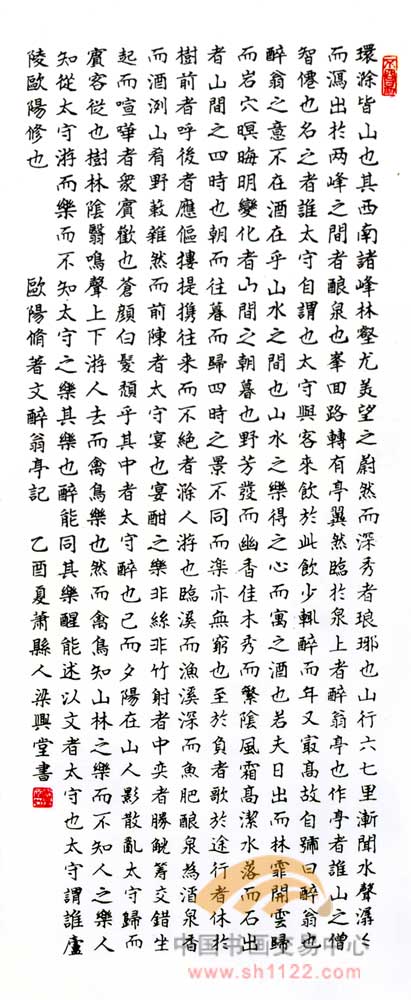 環滁皆山也其西南諸峰林壑尤美望之蔚然而深秀者琅琊也山行六七里漸聞水聲潺々
而瀉出於两峰之間者酿泉也峯回路轉有亭翼然臨於泉上者醉翁亭也作亭者誰山之僧
智僊也名之者誰太守自謂也太守與客來飲於此飲少輒醉而年又最高故自號曰醉翁也
醉翁之意不在酒在乎山水之間也山水之樂得之心而寓之酒也若夫日出而林霏開雲歸
而岩穴暝晦明變化者山間之朝暮也野芳發而幽香佳木秀而繁陰風霜高潔水落而石出
者山間之四時也朝而往暮而歸四時之景不同而楽亦無窮也至於負者歌於途行者休於
樹前者呼後者應傴摟提携往来而不絕者滁人游也臨溪而漁溪深而魚肥酿泉為酒泉香
而酒洌山肴野蔌雜然而前陳者太守宴也宴酣之樂非絲非竹射者中奕者勝觥籌交錯坐
起而喧嘩者衆賓歡也蒼顔白髮頹乎其中者太守醉也已而夕陽在山人影散亂太守歸而
賓客從也樹林陰翳鳴聲上下游人去而禽鳥樂也然而禽鳥知山林之樂而不知人之樂人
知從太守游而樂而不知太守之樂其樂也醉能同其樂醒能述以文者太守也太守謂誰廬
陵歐陽修也 歐陽脩著文醉翁亭記 乙酉夏蕭縣人梁興堂書
中国书画交易中心
www.sh1122.com